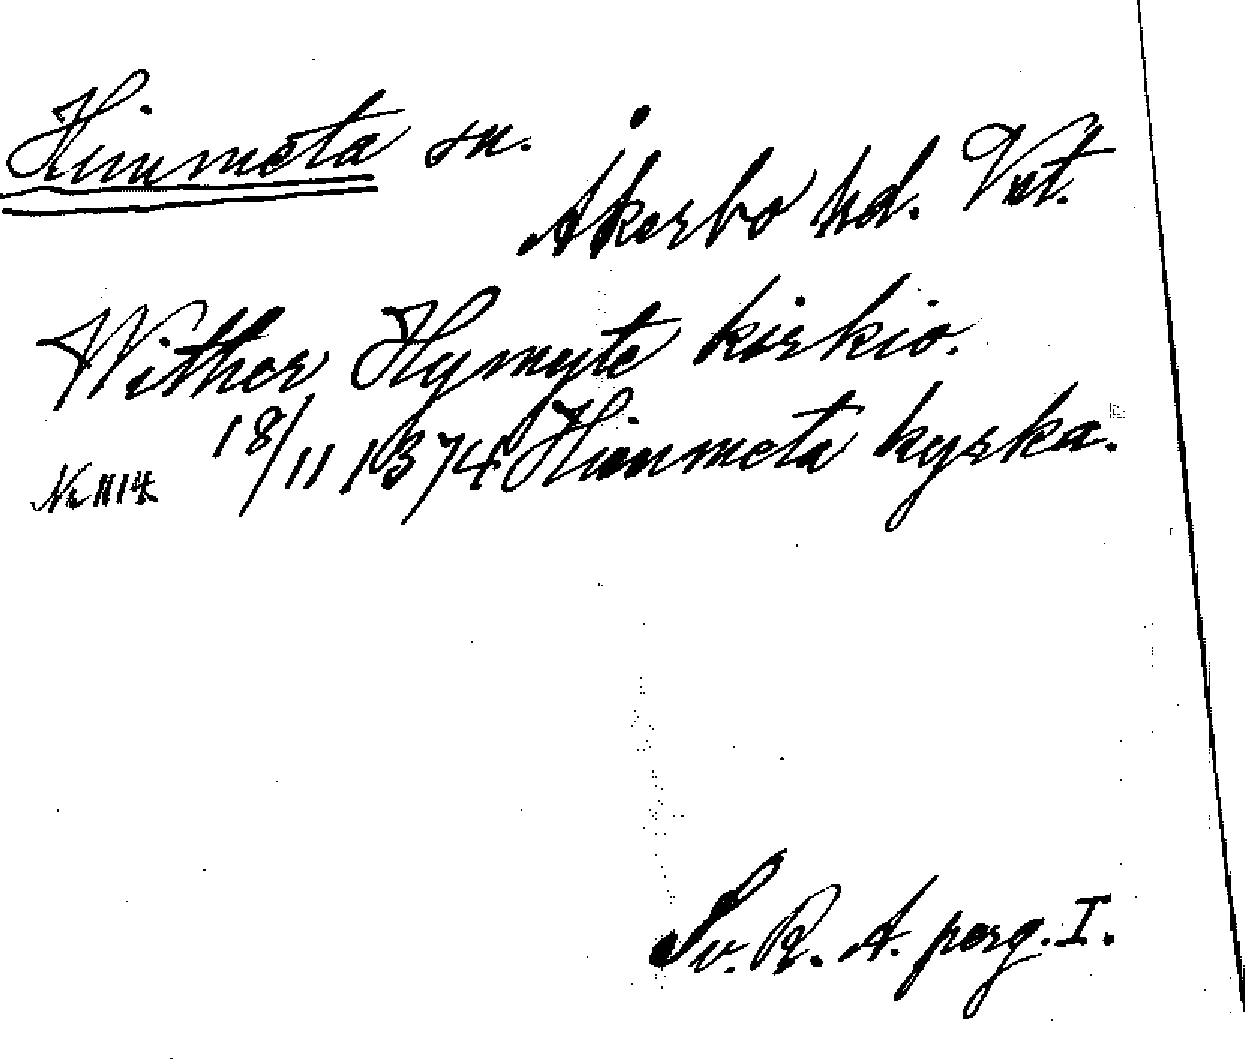 Himmeta sn.
Åkerbo hd. Vst.
Wither Hymyte kirkio.
18/11 1374 Himmeta kyrka.
No 1114.
Sv. R. A. perg. I.